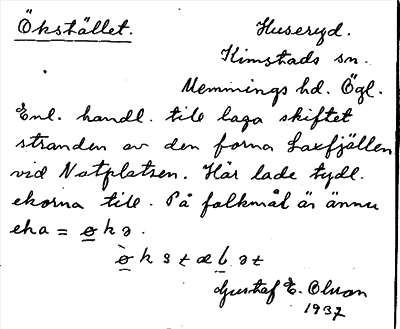 Ökstället. Huseryd.
Kimstads sn.
Memmings hd. Ögl.
Enl. handl. till laga skiftet
stranden av den forna Laxfjällen
vid Notplatsen. Här lade tydl.
ekorna till. På folkmål är ännu
eka = økə.
ø̀kstælət
Gustaf E. Olsson
1937